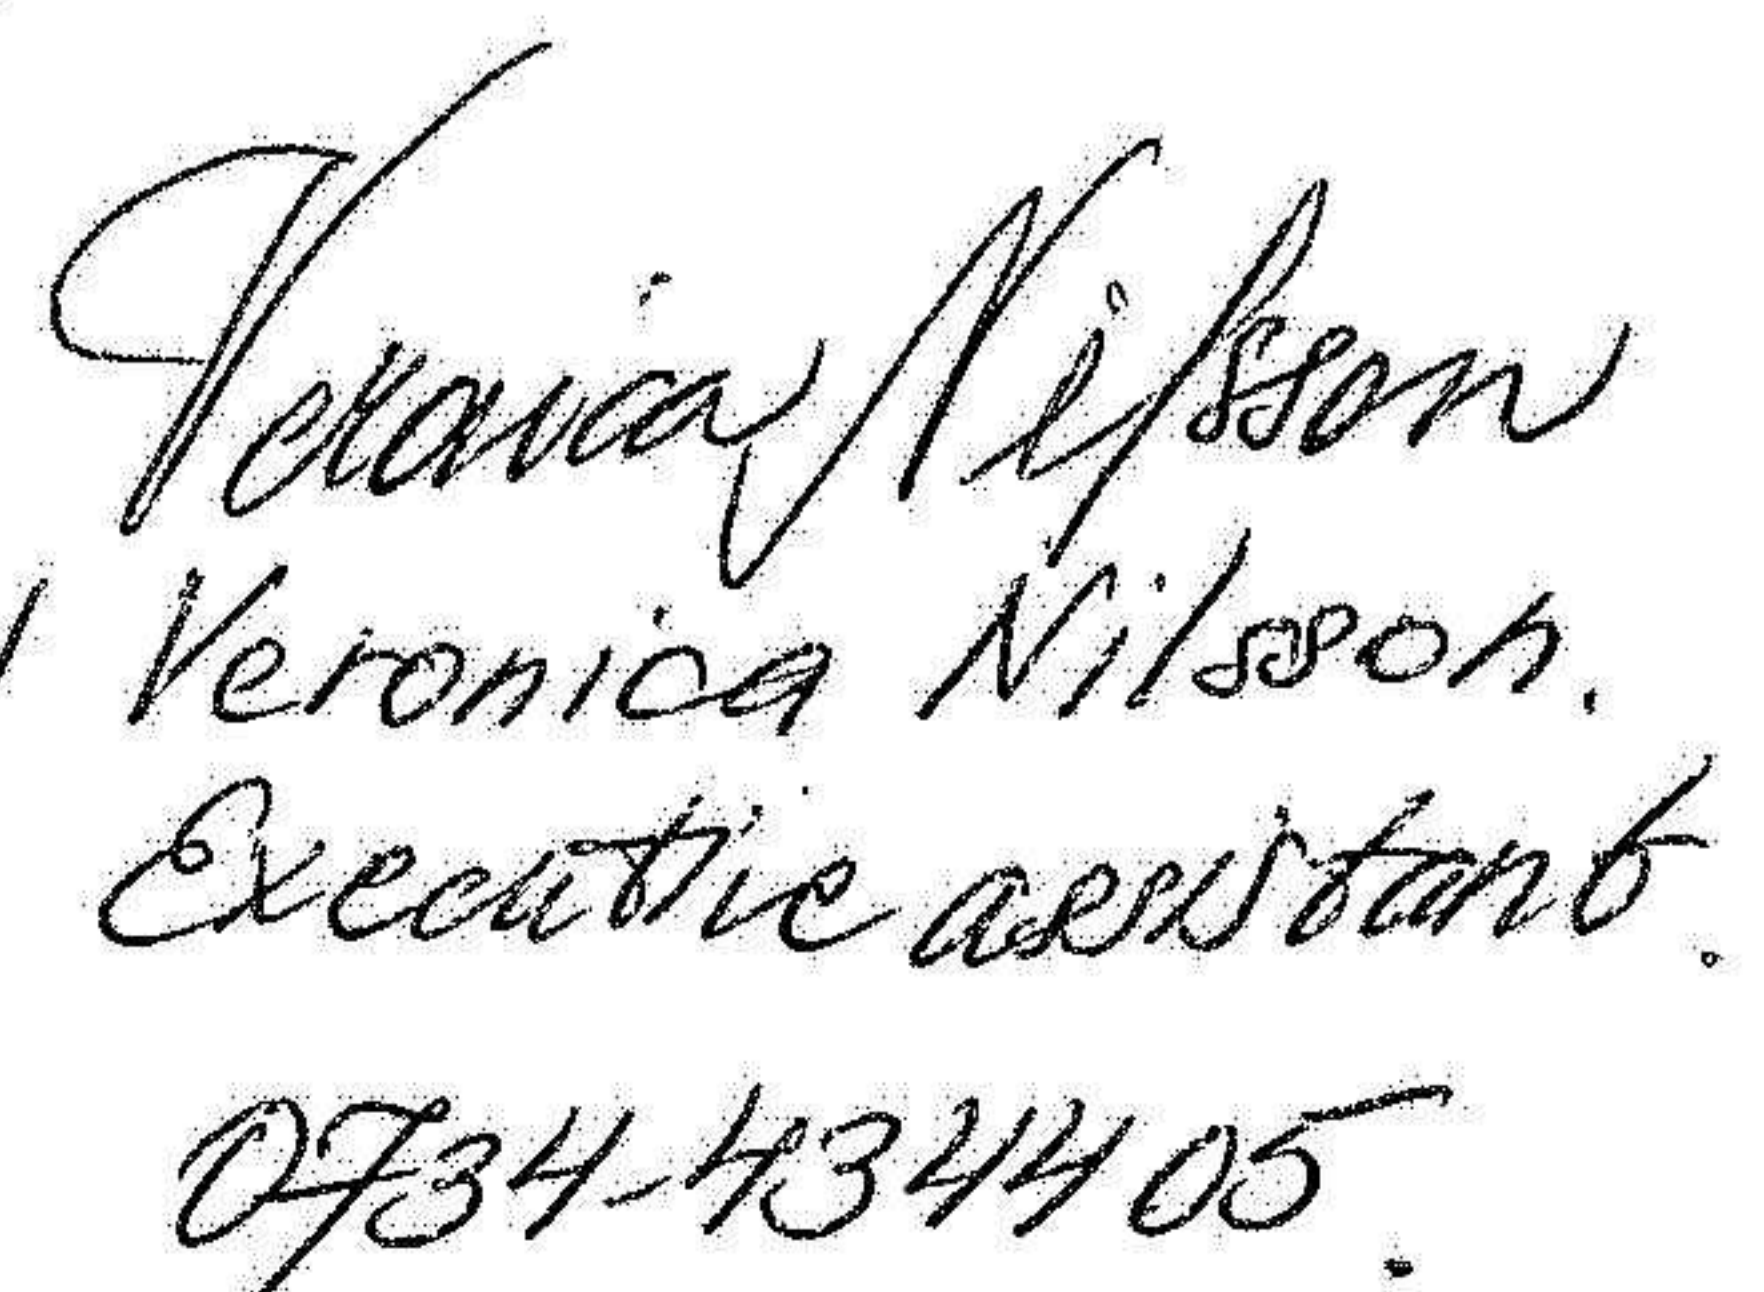 Veronica Nilsson
Veronica Nilsson.
Executive assistant.
0734-434405.